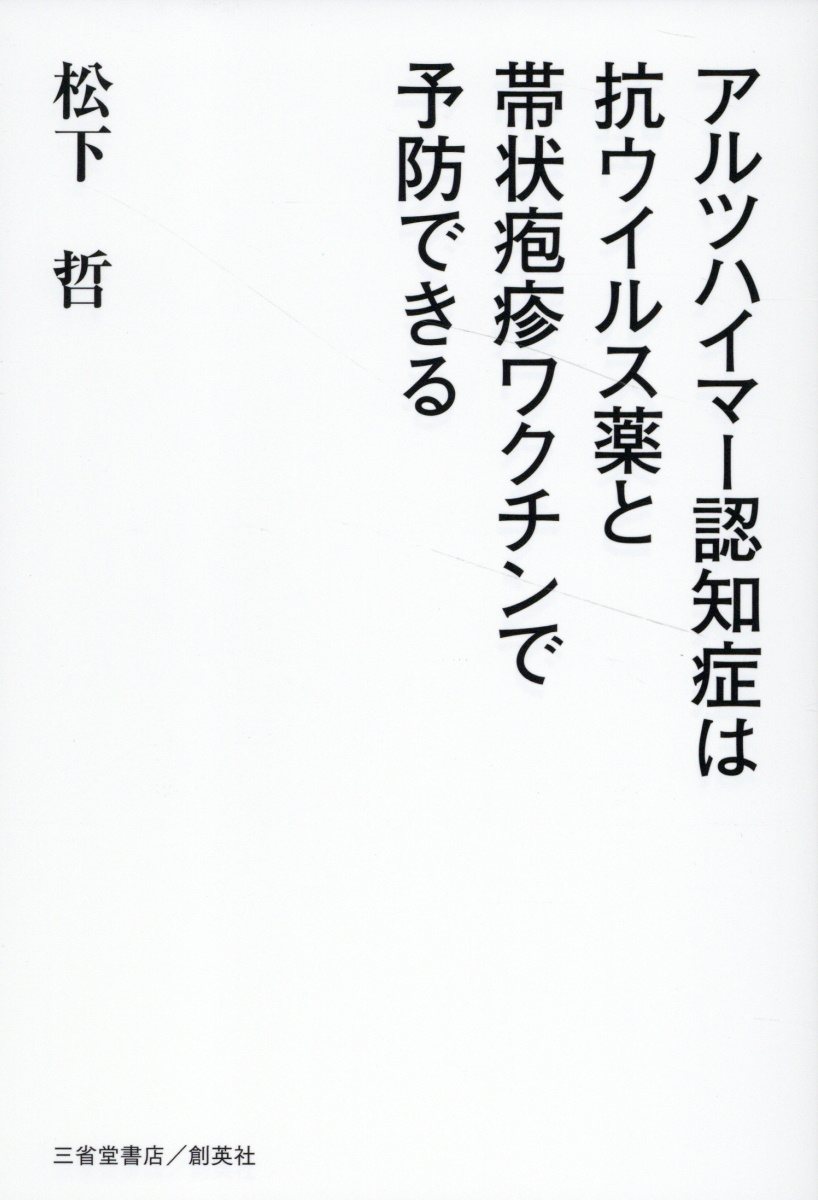 アルツハイマー認知症は
抗ウイルス薬と
帯状疱疹ワクチンで
予防できる
松下 哲
三省堂書店／創英社